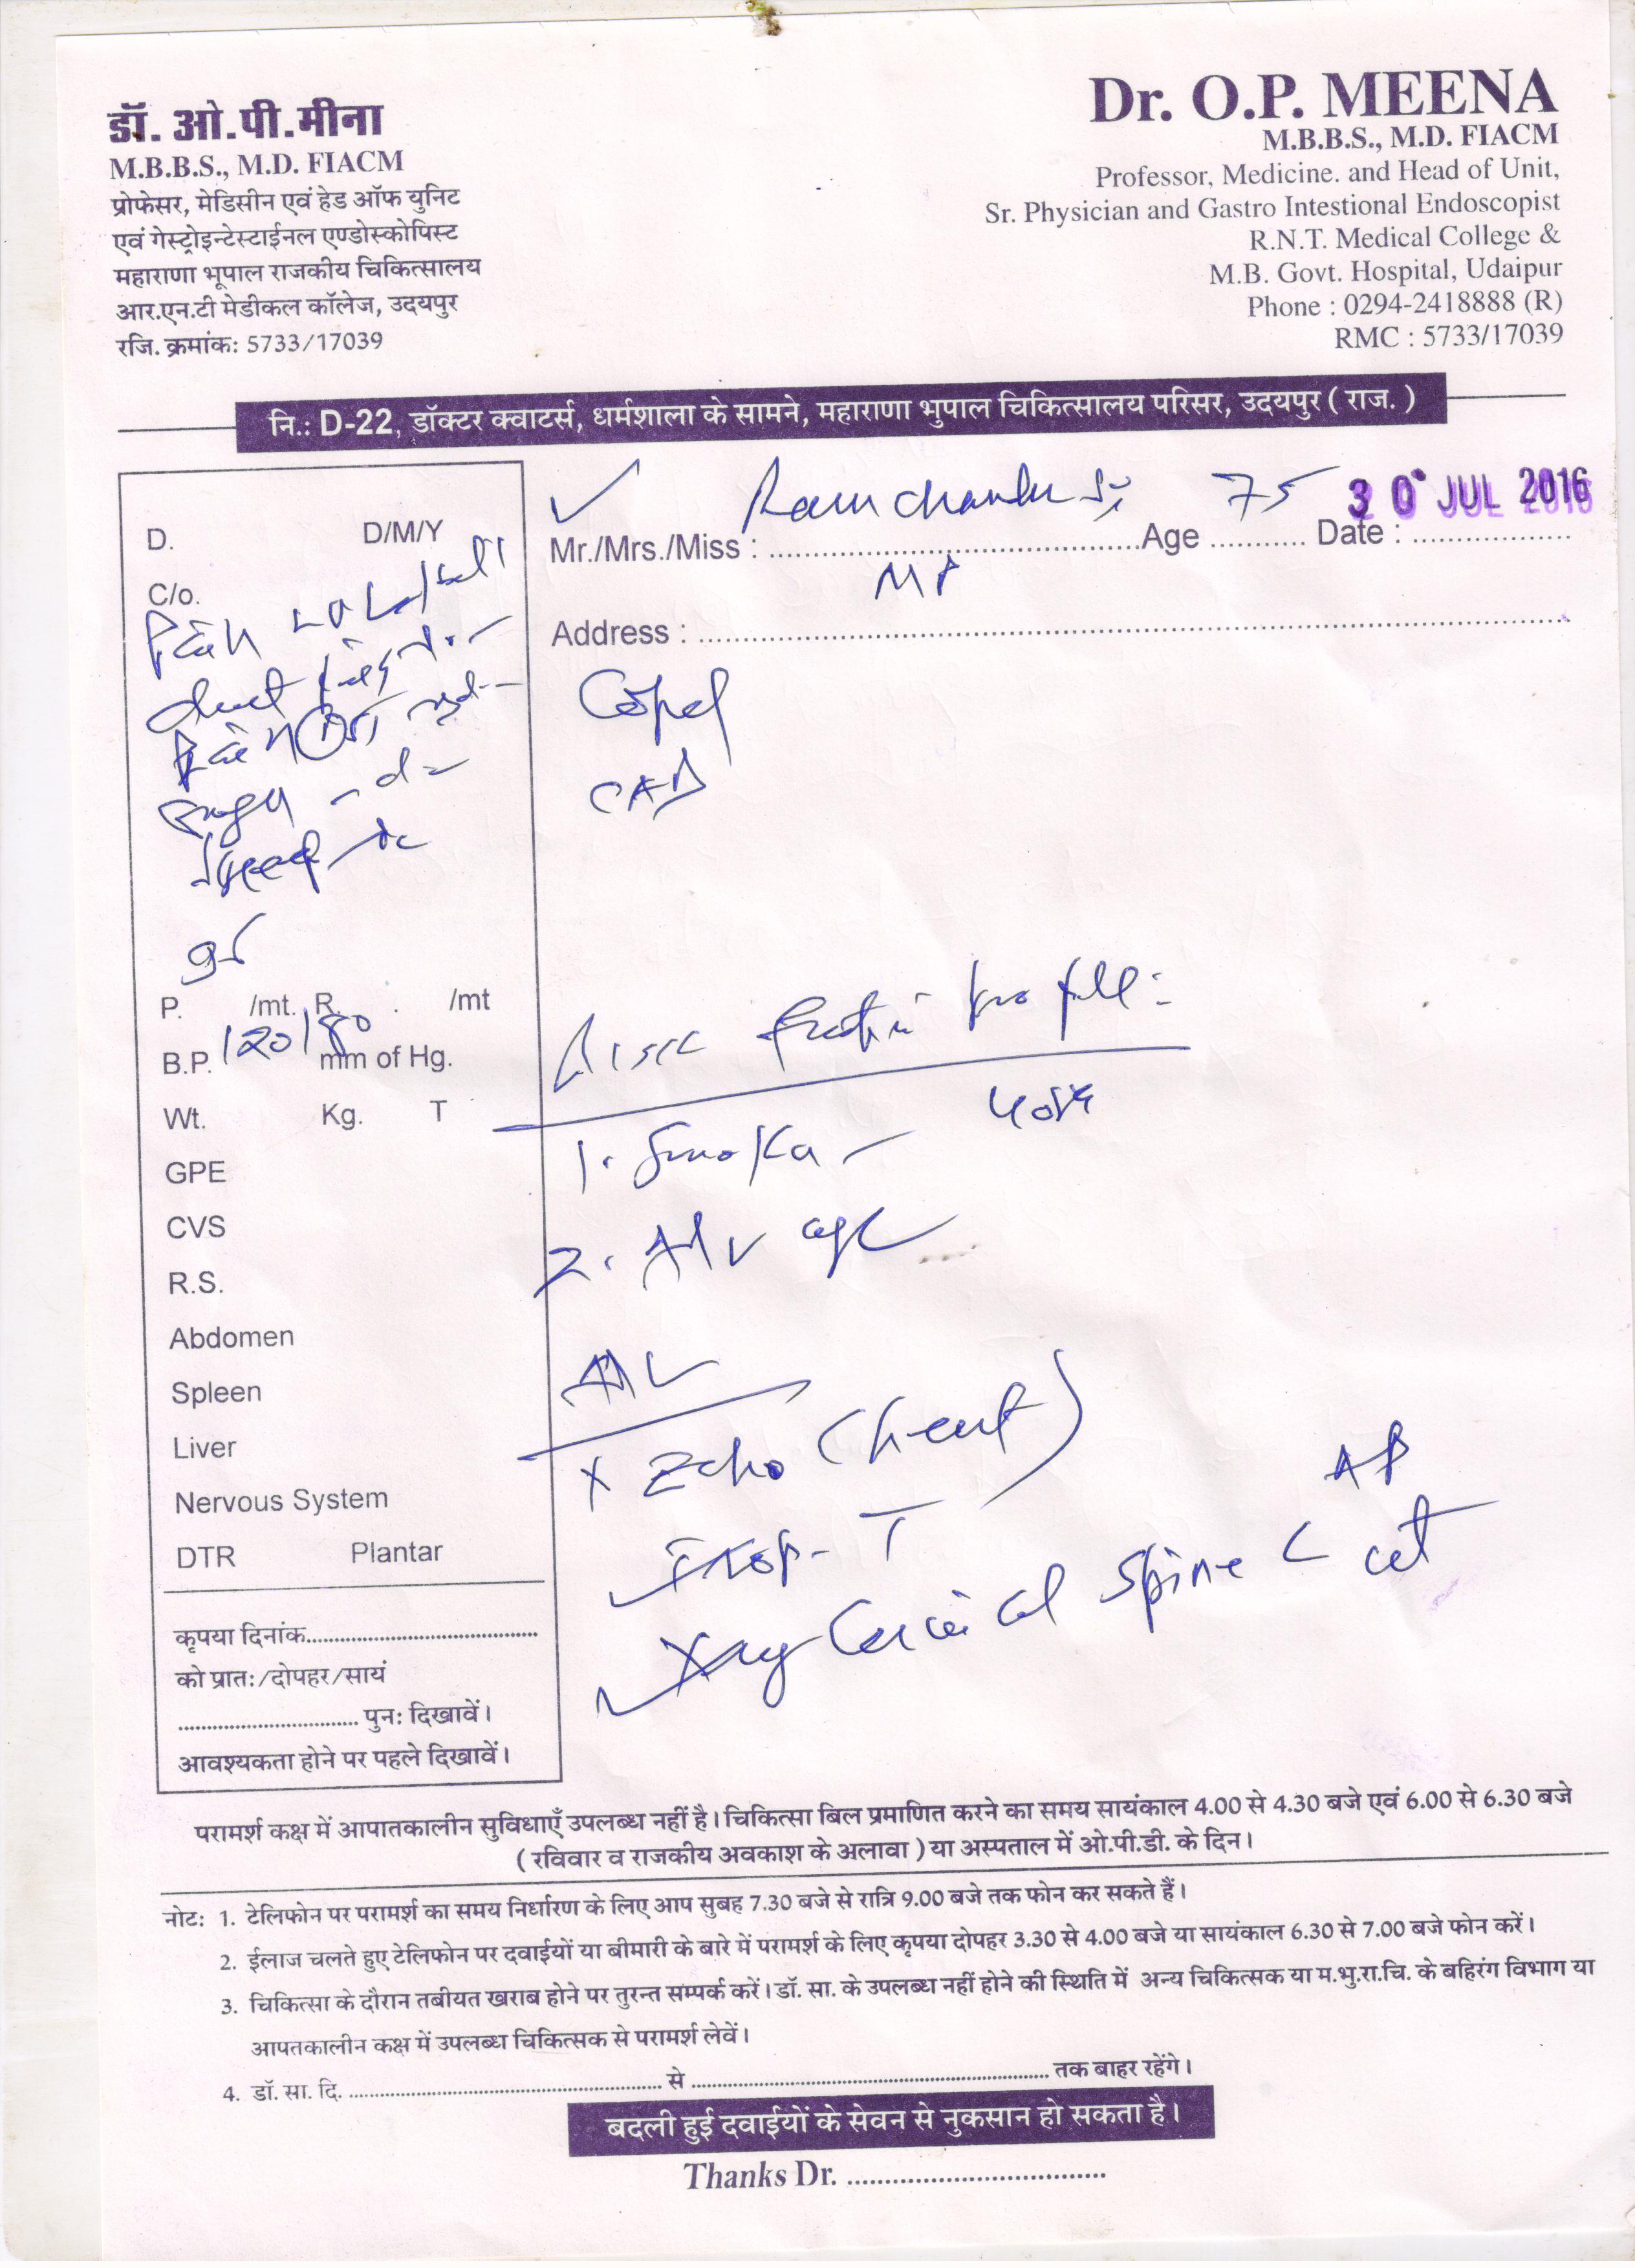 डॉ. ओ.पी.मीना
M.B.B.S., M.D. FIACM
प्रोफेसर, मेडिसीन एवं हेड ऑफ युनिट
एवं गेस्ट्रोइन्टेस्टाईनल एण्डोस्कोपिस्ट
महाराणा भूपाल राजकीय चिकित्सालय
आर.एन.टी मेडीकल कॉलेज, उदयपुर
रजि. क्रमांक: 5733/17039
Dr. O.P. MEENA
M.B.B.S., M.D. FIACM
Professor, Medicine. and Head of Unit,
Sr. Physician and Gastro Intestional Endoscopist
R.N.T. Medical College &
M.B. Govt. Hospital, Udaipur
Phone : 0294-2418888 (R)
RMC : 5733/17039
नि.: D-22, डॉक्टर क्वाटर्स, धर्मशाला के सामने, महाराणा भुपाल चिकित्सालय परिसर, उदयपुर ( राज. )
Mr./Mrs./Miss : Age 75 Date : 30 JUL 2016
MP
Address :
D. D/M/Y
C/o.
Pain
Pain
95
P. /mt. R. /mt
B.P. 120/80 mm of Hg.
Wt. Kg. T
GPE
CVS
R.S.
Abdomen
Spleen
Liver
Nervous System
DTR Plantar
कृपया दिनांक
को प्रातः/दोपहर/सायं
पुनः दिखावें।
आवश्यकता होने पर पहले दिखावें।
Copd
CAD
profile:
1. Smoker -
2. Adv age
Adv
x Echo (heart)
Trop-T
Xray Cervical spine AP
परामर्श कक्ष में आपातकालीन सुविधाएँ उपलब्ध नहीं है। चिकित्सा बिल प्रमाणित करने का समय सायंकाल 4.00 से 4.30 बजे एवं 6.00 से 6.30 बजे
( रविवार व राजकीय अवकाश के अलावा ) या अस्पताल में ओ.पी.डी. के दिन।
नोट: 1. टेलिफोन पर परामर्श का समय निर्धारण के लिए आप सुबह 7.30 बजे से रात्रि 9.00 बजे तक फोन कर सकते हैं।
2. ईलाज चलते हुए टेलिफोन पर दवाईयों या बीमारी के बारे में परामर्श के लिए कृपया दोपहर 3.30 से 4.00 बजे या सायंकाल 6.30 से 7.00 बजे फोन करें।
3. चिकित्सा के दौरान तबीयत खराब होने पर तुरन्त सम्पर्क करें। डॉ. सा. के उपलब्ध नहीं होने की स्थिति में अन्य चिकित्सक या म.भु.रा.चि. के बहिरंग विभाग या
आपतकालीन कक्ष में उपलब्ध चिकित्सक से परामर्श लेवें।
4. डॉ. सा. दि. से तक बाहर रहेंगे।
बदली हुई दवाईयों के सेवन से नुकसान हो सकता है।
Thanks Dr.